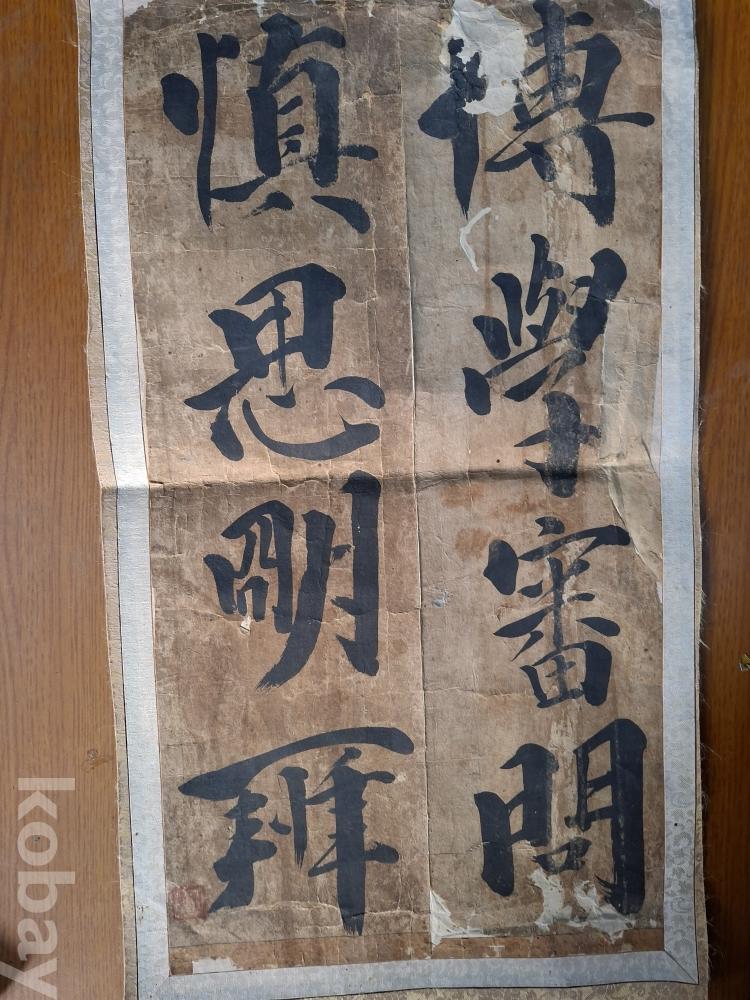 博學審問
慎思明辨
kobay